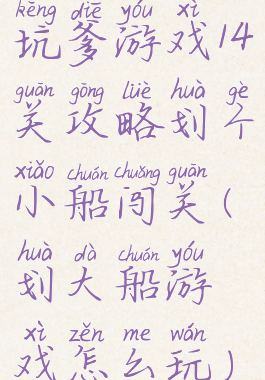 kēng diē yóu xì
坑爹游戏14
guān gōng lüè huà gè
关攻略划个
xiǎo chuán chuǎng guān
小船闯关(
huà dà chuán yóu
划大船游
xì zěn me wán
戏怎么玩)